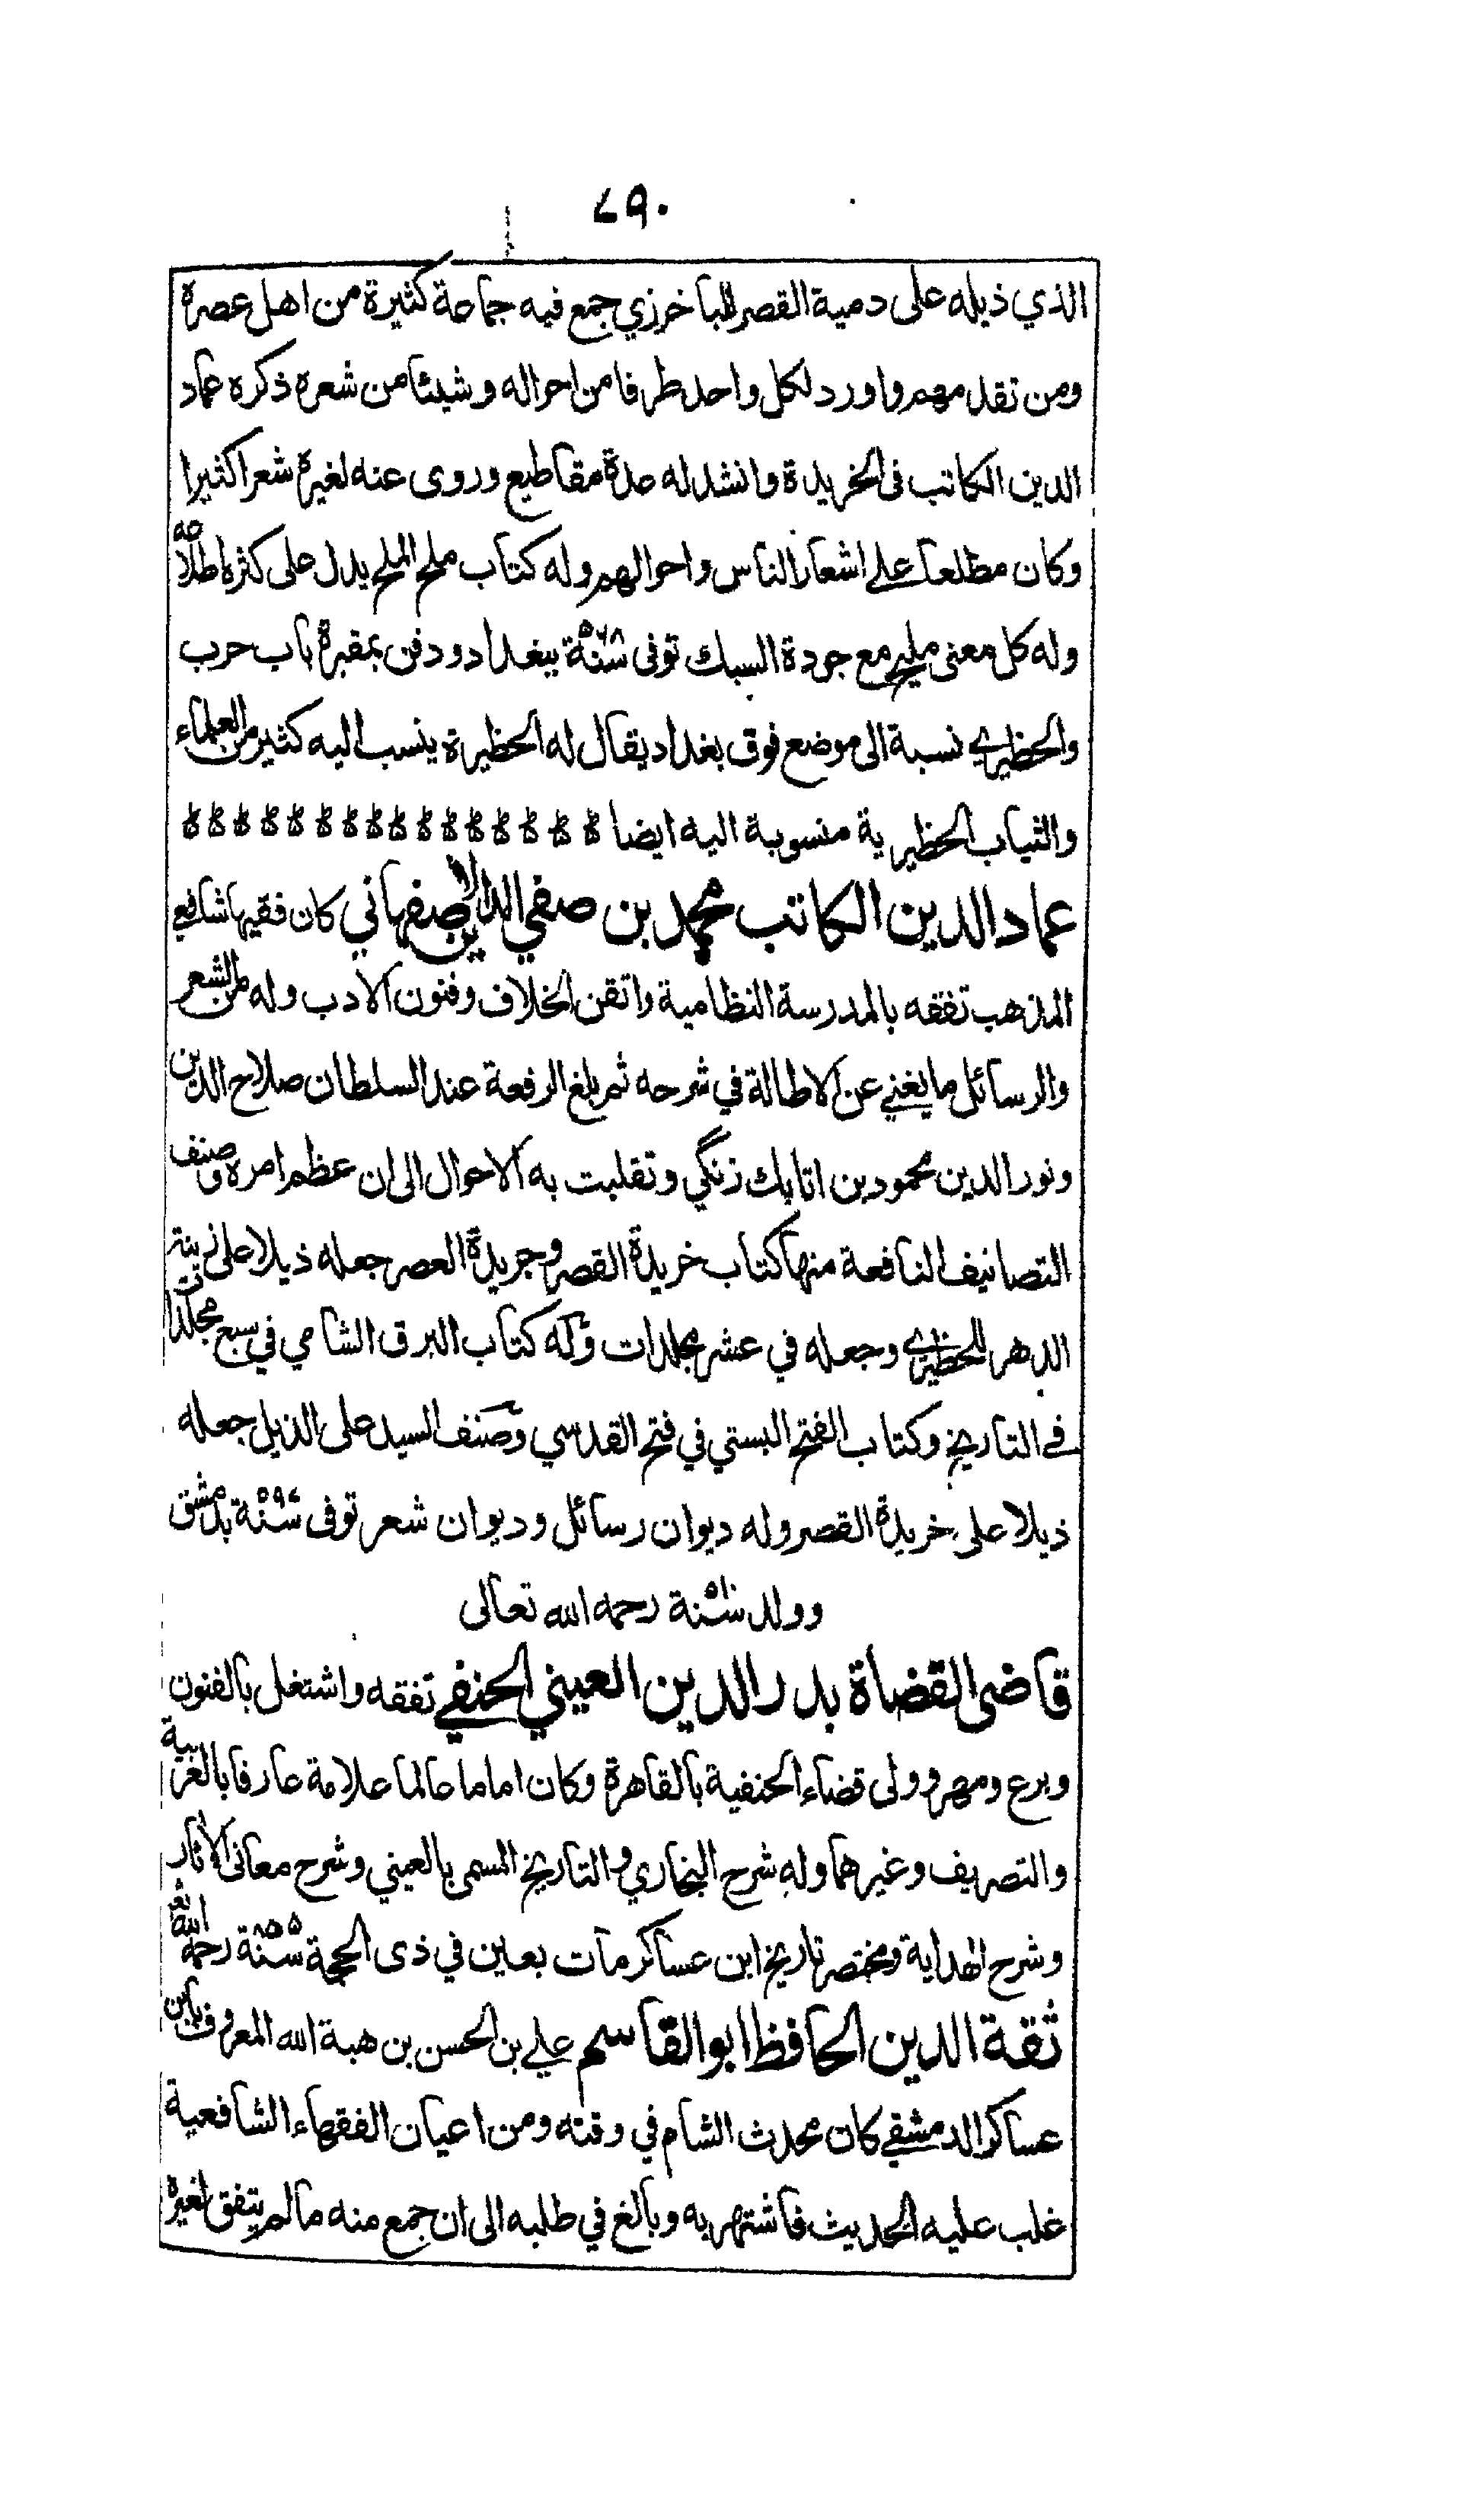 ٧٩٠
الذي ذيله على دمية القصر للباخرزي جمع فيه جماعة كثيرة من اهل عصره
ومن تقدمهم واورد لكل واحد طرفا من احواله وشيئا من شعره ذكره عماد
الدين الكاتب فى الخريدة وانشد له عدة مقاطيع وروى عنه لغيره شعرا كثيرا
وكان مطلعا على اشعار الناس واحوالهم وله كتاب ملح الملح يدل على كثرة اطلاعه
وله كل معنى مليح مع جودة السبك توفى سنة ٥٦٨ ببغداد ودفن بمقبرة باب حرب
والحظيري نسبة الى موضع فوق بغداد يقال له الحظيرة ينسب اليه كثير من العلماء
والثياب الحظيرية منسوبة اليه ايضا
عماد الدين الكاتب محمد بن صفي الدين الاصفهاني كان فقيها شافعي
المذهب تفقه بالمدرسة النظامية واتقن الخلاف وفنون الادب وله من الشعر
والرسائل ما يغني عن الاطالة في شرحه ثم بلغ الرفعة عند السلطان صلاح الدين
ونور الدين محمود بن اتابك زنگي وتقلبت به الاحوال الى ان عظم امره وصنف
التصانيف النافعة منها كتاب خريدة القصر وجريدة العصر جعله ذيلا على زينة
الدهر للحظيري وجعله في عشر مجلدات وله كتاب البرق الشامي في سبع مجلدات
في التاريخ وكتاب الفتح البستي في فتح القدسي وصنف السيد على الذيل جعله
ذيلا على خريدة القصر وله ديوان رسائل وديوان شعر توفى سنة ٥٩٧ بدمشق
وولد سنة رحمه الله تعالى
قاضى القضاة بدر الدين العيني الحنفي تفقه واشتغل بالفنون
وبرع ومهر وولى قضاء الحنفية بالقاهرة وكان اماما عالما علامة عارفا بالعربية
والتصريف وغيرهما وله شرح البخاري والتاريخ المسمى بالعيني وشرح معانى الاثار
وشرح الهداية ومختصر تاريخ ابن عساكر مات بعين في ذى الحجة سنة ٨٥٥ رحمه الله تع
ثقة الدين الحافظ ابو القاسم علي بن الحسن بن هبة الله المعروف بابن
عساكر الدمشقي كان محدث الشام في وقته ومن اعيان الفقهاء الشافعية
غلب عليه الحديث فاشتهر به وبالغ في طلبه الى ان جمع منه ما لم يتفق لغيره